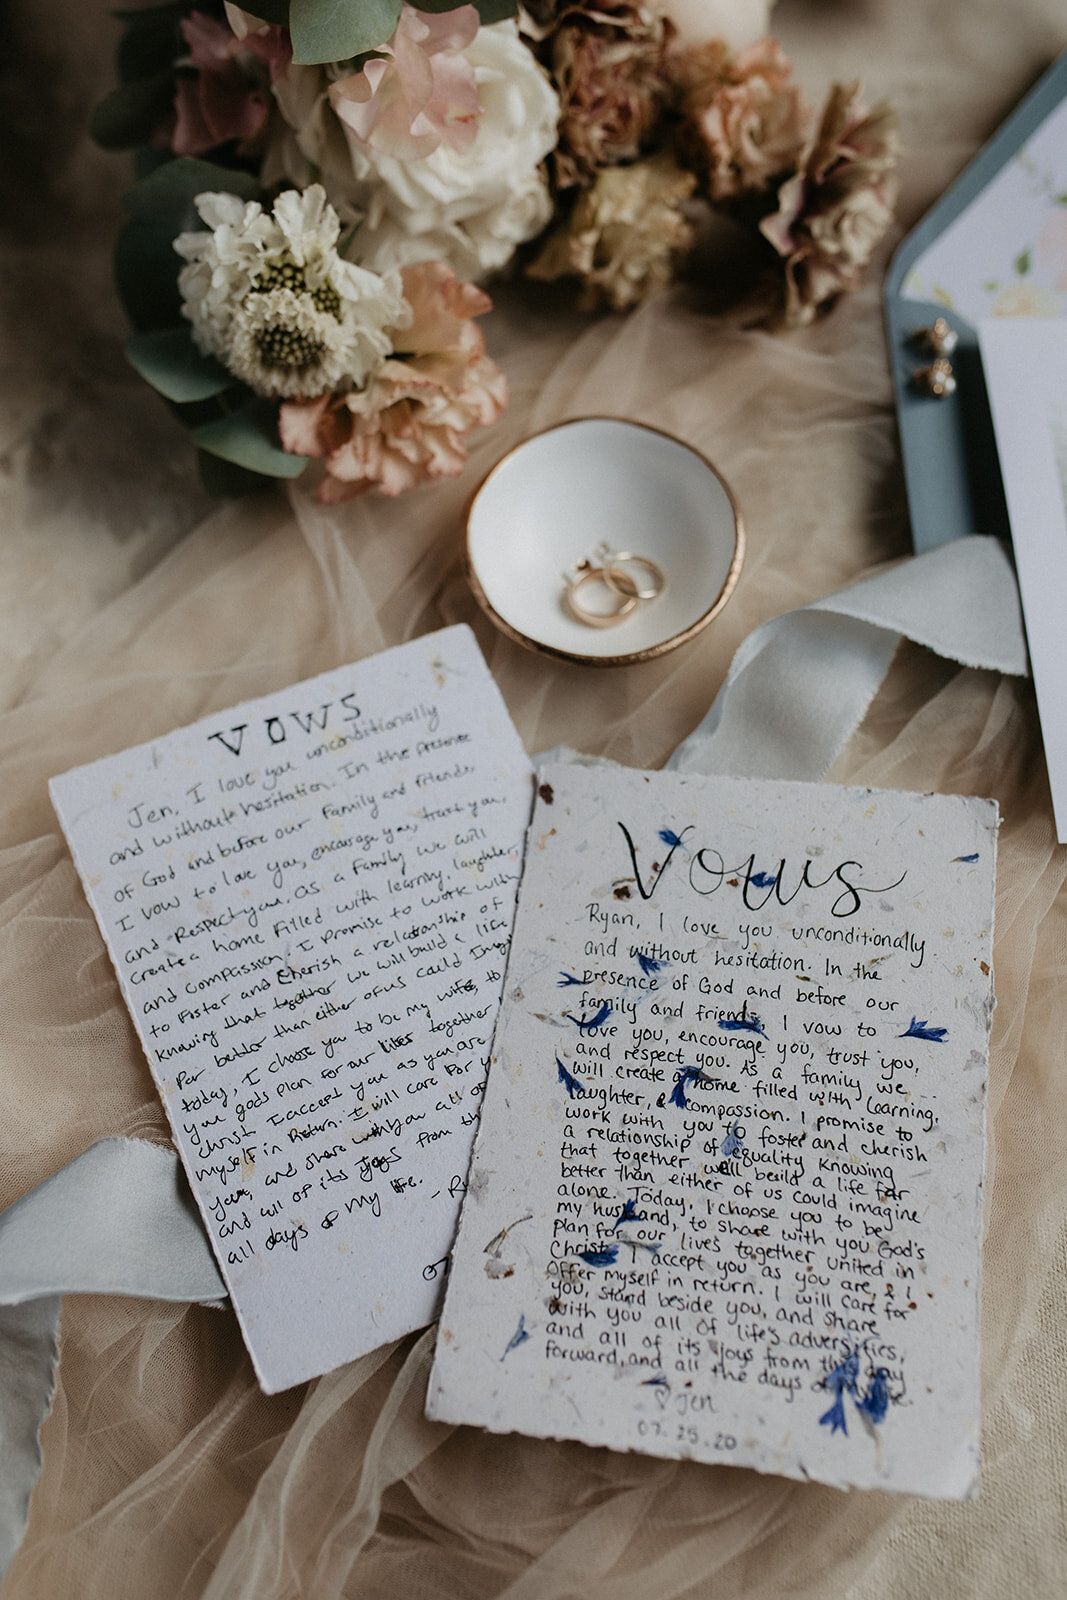 VOWS
Jen, I love you unconditionally
and without hesitation. In the presence
of God and before our family and friends,
I vow to love you, encourage you, trust you,
and Respect you. As a family we will
create a home filled with learning, laughter,
and compassion. I promise to work with
to Foster and cherish a relationship of
knowing that together we will build a life
far better than either of us could Imag
today, I choose you to be my wife, to
you gods plan for our lives together
christ I accept you as you are
myself in Return. I will care for y
you, and share with you all of
and all of its joys from th
all days of my life.
- Ry
07
Vows
Ryan, I love you unconditionally
and without hesitation. In the
presence of God and before our
family and friends, I vow to
love you, encourage you, trust you,
and respect you. As a family we
will create a home filled with learning,
laughter, & compassion. I promise to
work with you to foster and cherish
a relationship of equality knowing
that together we'll build a life far
better than either of us could imagine
alone. Today, I choose you to be
my husband, to share with you God's
plan for our lives together united in
Christ. I accept you as you are, & I
offer myself in return. I will care for
you, stand beside you, and share
with you all of life's adversities,
and all of its joys from this day
forward, and all the days of my life.
♡ Jen
07.25.20